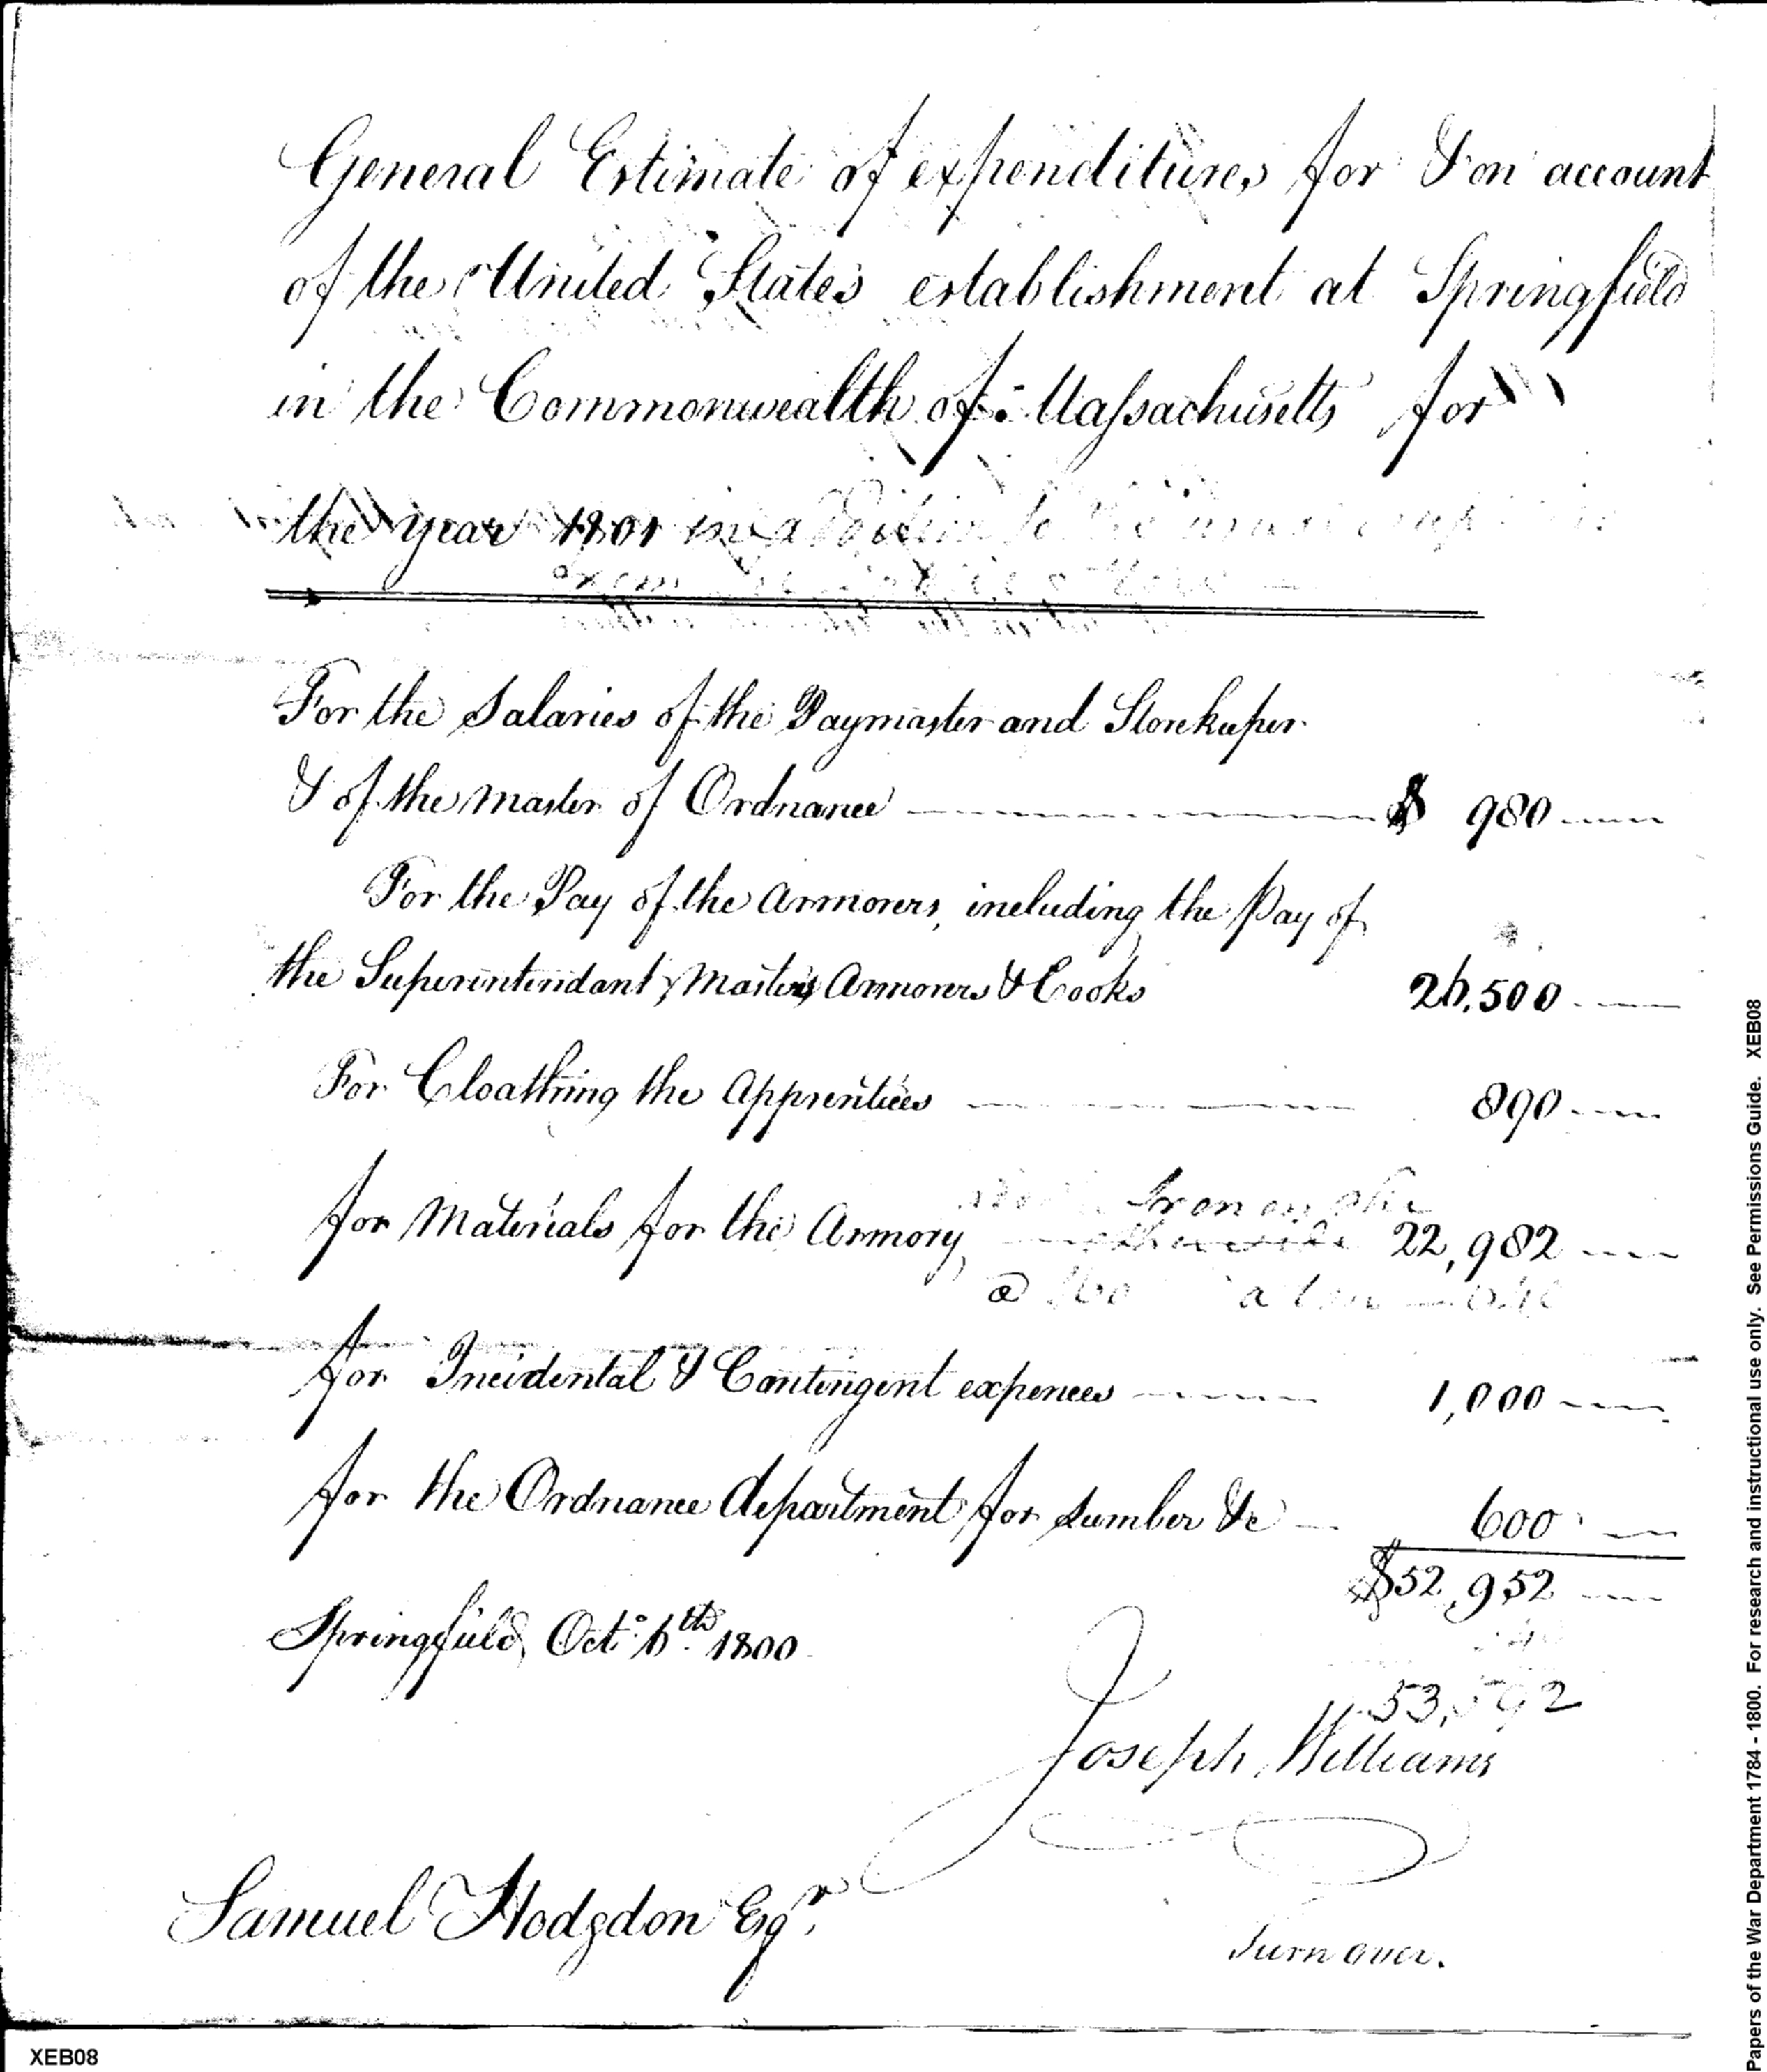 General Estimate of expenditures for & on account
of the United States establishment at Springfield
in the Commonwealth of Massachusetts for
the year 1801 in addition to the
For the Salaries of the Paymaster and Storekeeper
& of the Master of Ordnance $ 980
For the Pay of the Armorers, including the Pay of
the Superintendant, Masters Armorers & Cooks 26,500
For Cloathing the Apprentices 890
Iron on the
for Materials for the Armory, 22,982
@
for Incidental & Contingent expences 1,000
for the Ordnance department for Lumber &c 600
$52,952
Springfield, Oct. 6th 1800
53,592
Joseph Williams
Samuel Hodgdon Esqr.
Turn over.
XEB08
Papers of the War Department 1784 - 1800. For research and instructional use only. See Permissions Guide. XEB08